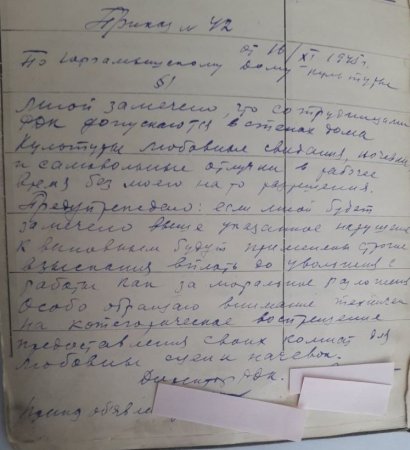 Приказ № 42
от 16/XI 1975г.
По Каргалинскому Дому культуры
§1
Мной замечено, что сотрудницами
РДК допускаются в стенах дома
культуры любовные свидания, ночёвки
и самовольные отлучки в рабочее
время без моего на то разрешения.
Предупреждаю: если мной будет
замечено выше указанное нарушение
к виновным будут применены строгие
взыскания вплоть до увольнения с
работы как за моральное разложение
Особо обращаю внимание технички
на категорическое воспрещение
предоставления своих комнат для
любовных сцен и ночёвок.
Директор РДК.
объявле